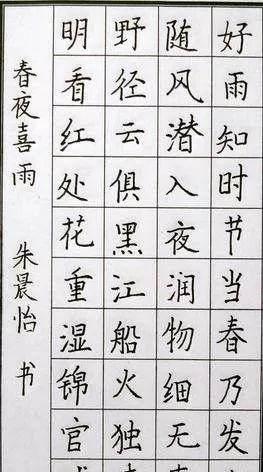 好雨知时节当春乃发
随风潜入夜润物细无
野径云俱黑江船火独
明看红处花重湿锦官
春夜喜雨 朱晨怡 书